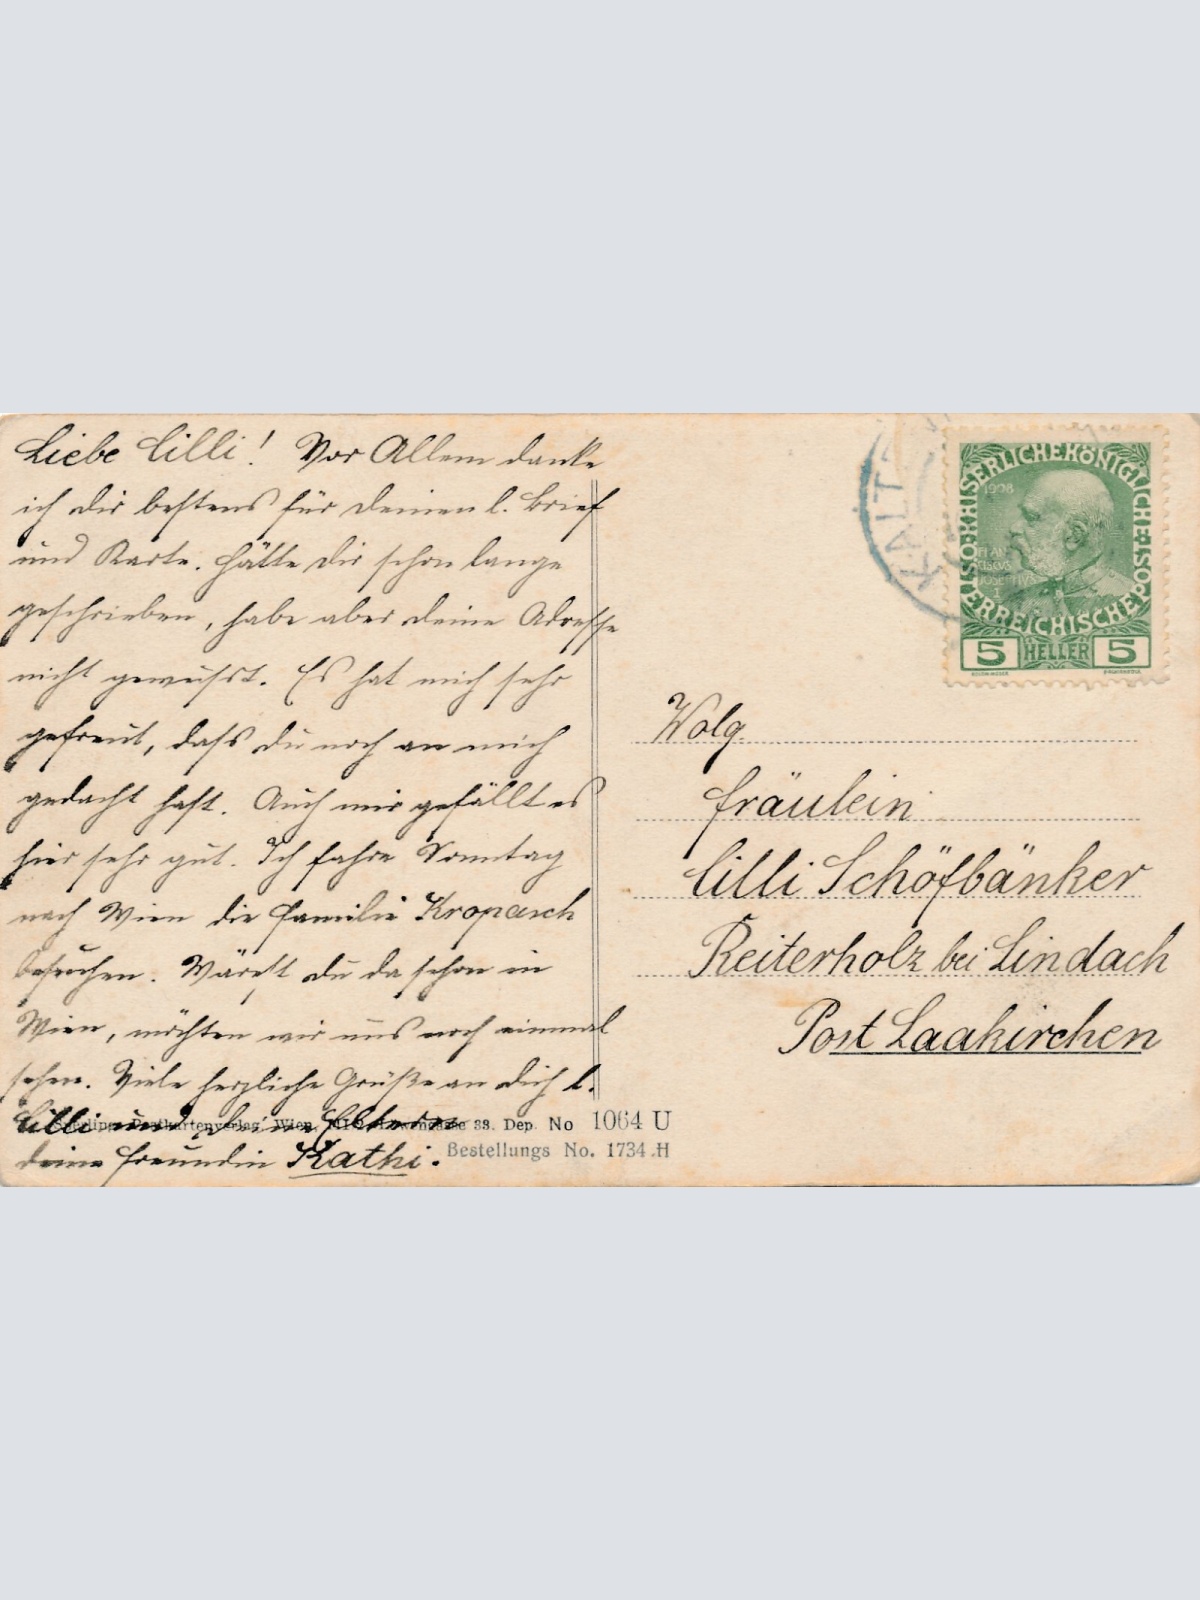 Liebe Cilli! Vor Allem danke
ich dir bestens für deinen l. Brief
und Karte. Hätte dir schon lange
geschrieben, habe aber deine Adresse
nicht gewußt. Es hat mich sehr
gefreut, daß du noch an mich
gedacht hast. Auch mir gefällt es
hier sehr gut. Ich fahre Sonntag
nach Wien die Familie Kropasch
besuchen. Wärest du da schon in
Wien, möchten wir uns noch einmal
sehen. Viele herzliche Grüße an dich l.
Cilli und deine Eltern
deine Freundin Kathi.
Postkartenverlag, Wien, 38. Dep. No 1064 U
Bestellungs No. 1734 H
KALT
KAISERLICHE KÖNIGLICHE ÖSTERREICHISCHE POST
1908
FRANCISCVS
JOSEPHVS
I
5 HELLER 5
Wolg.
Fräulein
Cilli Schöfbänker
Reiterholz bei Lindach
Post Laakirchen